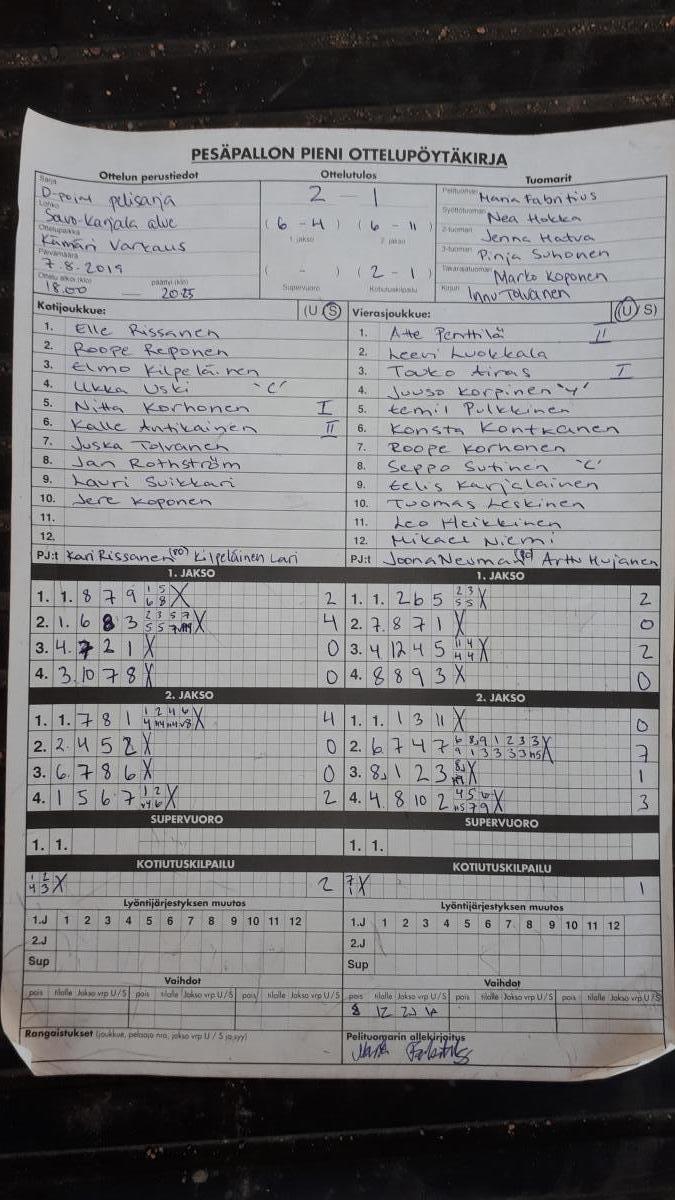 PESÄPALLON PIENI OTTELUPÖYTÄKIRJA
Ottelun perustiedot
Sarja D-point pelisarja
Lohko Savo-Karjala alue
Ottelupaikka Kämäri Varkaus
Päivämäärä 7.8.2019
Ottelu alkoi (klo) 18.00 — päättyi (klo) 20.25
Ottelutulos
2 - 1
(6 - 4) (6 - 11)
1. jakso 2. jakso
( - ) (2 - 1)
Supervuoro Kotiutuskilpailu
Tuomarit
Pelituomari Maria Fabritius
Syöttötuomari Nea Hokka
2-tuomari Jenna Hatva
3-tuomari Pinja Suhonen
Takarajatuomari Marko Koponen
Kirjuri Innu Tolvanen
Kotijoukkue: (U S)
1. Elle Rissanen
2. Roope Reponen
3. Elmo Kilpeläinen
4. Ukka Uski "C"
5. Nitta Korhonen I
6. Kalle Antikainen II
7. Juska Tolvanen
8. Jan Rothström
9. Lauri Suikkari
10. Jere Koponen
11.
12.
PJ:t Kari Rissanen Kilpeläinen Lari
Vierasjoukkue: (U S)
1. Atte Penttilä II
2. Leevi Luokkala
3. Touko Airas I
4. Juuso Korpinen "Y"
5. Eemil Pulkkinen
6. Konsta Kontkanen
7. Roope Korhonen
8. Seppo Sutinen "C"
9. Eelis Karjalainen
10. Tuomas Leskinen
11. Leo Heikkinen
12. Mikael Niemi
PJ:t Joona Neuman Arttu Hujanen
1. JAKSO
1. 1. 8 7 9 1 5 6 8 X 2
2. 1. 6 8 3 2 3 5 7 5 5 7 X 4
3. 4. 7 2 1 X 0
4. 3. 10 7 8 X 0
1. JAKSO
1. 1. 2 6 5 2 3 5 5 X 2
2. 7. 8 7 1 X 0
3. 4 12 4 5 11 4 4 4 X 2
4. 8 8 9 3 X 0
2. JAKSO
1. 1. 7 8 1 1 2 4 6 X 4
2. 2. 4 5 2 X 0
3. 6. 7 8 6 X 0
4. 1 5 6 7 1 2 X 2
2. JAKSO
1. 1. 1 3 11 X 0
2. 6 7 4 7 6 8 9 1 2 3 3 9 1 3 3 3 3 X 7
3. 8. 1 2 3 X 1
4. 4. 8 10 2 4 5 6 7 9 X 3
SUPERVUORO
1. 1.
SUPERVUORO
1. 1.
KOTIUTUSKILPAILU
1 2 4 3 X 2
KOTIUTUSKILPAILU
7 X 1
Lyöntijärjestyksen muutos
1.J 1 2 3 4 5 6 7 8 9 10 11 12
2.J
Sup
Lyöntijärjestyksen muutos
1.J 1 2 3 4 5 6 7 8 9 10 11 12
2.J
Sup
Vaihdot
pois tilalle Jakso vrp U/S pois tilalle Jakso vrp U/S pois tilalle Jakso vrp U/S
Vaihdot
pois tilalle Jakso vrp U/S pois tilalle Jakso vrp U/S pois tilalle Jakso vrp U/S
8 12 2J
Rangaistukset (joukkue, pelaaja nro, jakso vrp U / S ja syy)
Pelituomarin allekirjoitus